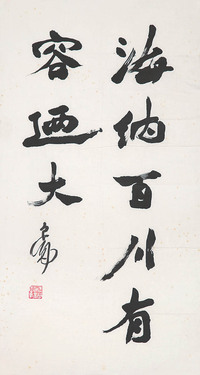 海纳百川有
容迺大